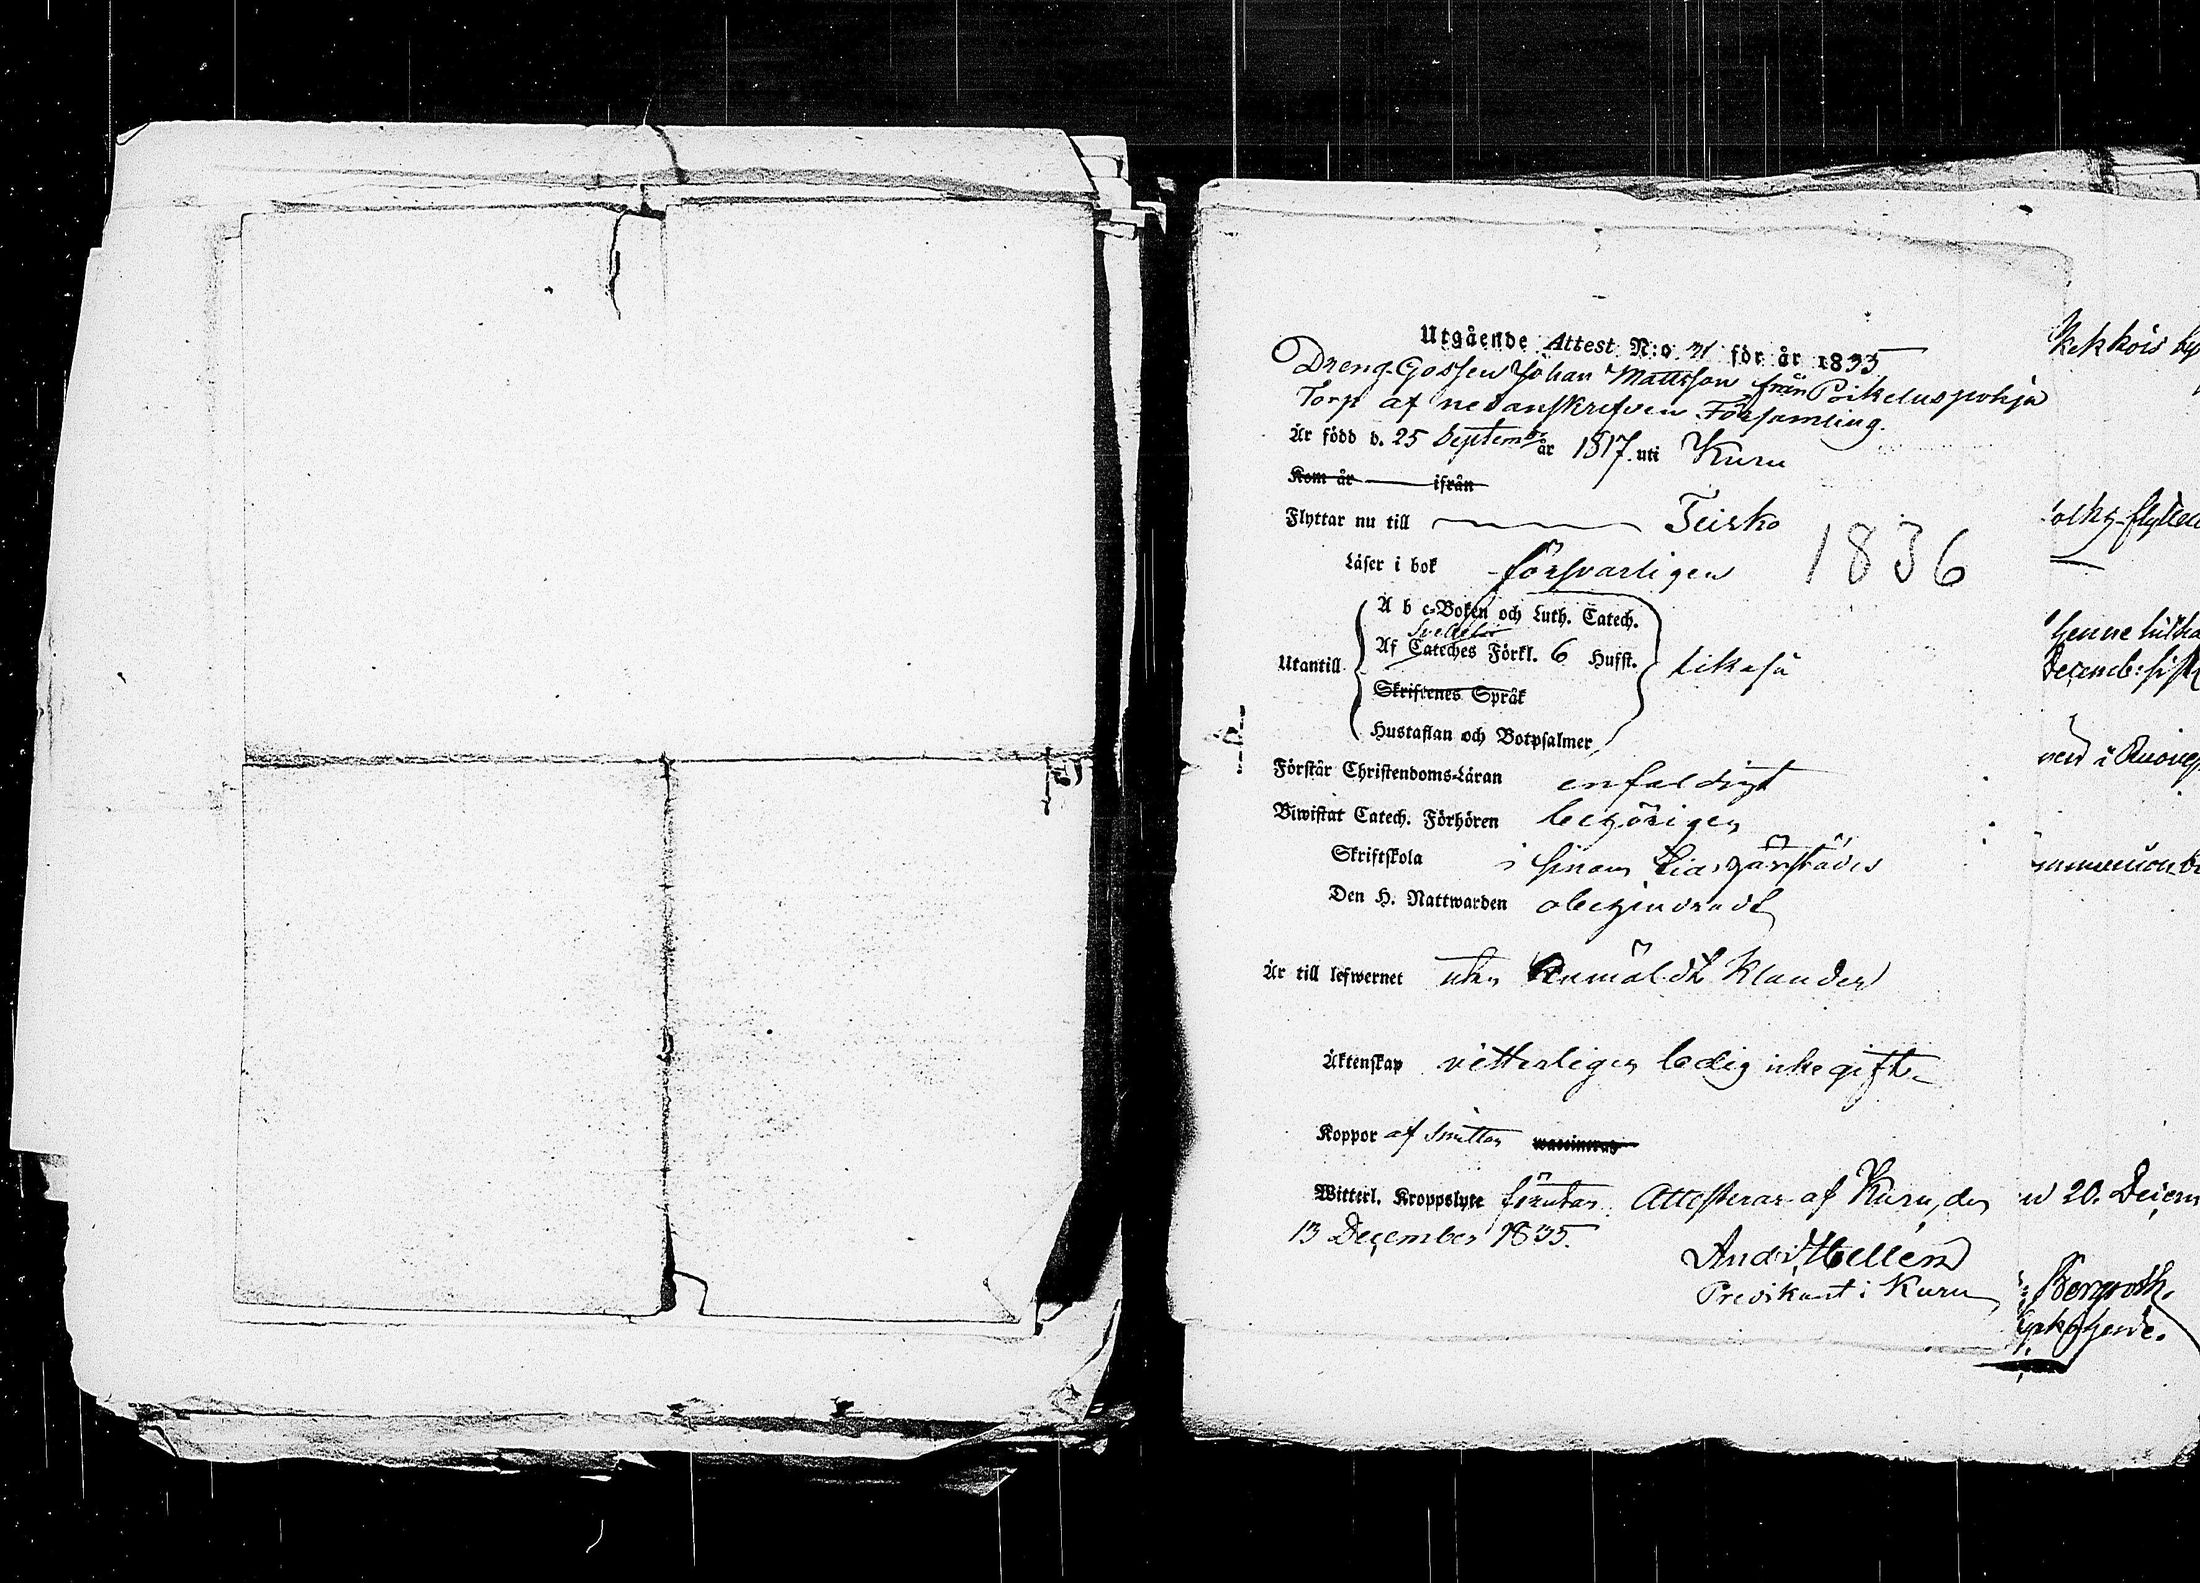 Utgående Attest N:o 31 för år 1835
Dreng-Gossen Johan Mattsson från Poikeluspohja
Torp af nedanskrefven Församling.
Är född d. 25 Septemb. år 1817. uti Kuru
Kom år ifrån
Flyttar nu till Teisko
1836
Läser i bok försvarligen
A b c-Boken och Luth. Catech.
Svebelii
Utantill Af Cateches Förkl. 6 Hufst. likaså
Skriftenes Språk
Hustaflan och Botpsalmer
Förstår Christendoms-Läran enfaldigt
Biwistat Catech. Förhören behörigen
Skriftskola i sinom tid härstädes
Den H. Nattwarden obehindradt
Är till lefwernet utan anmäldt klander
Äktenskap vitterligen ledig icke gift
Koppor af smittan
Witterl. Kroppslyte förutan. Attesteras af Kuru, den
13 December 1835.
And. Hellen
Predikant i Kuru
Kekkois by
folks-flytten
henne
Decemb:
ven i
20. Decem
Bergroth.